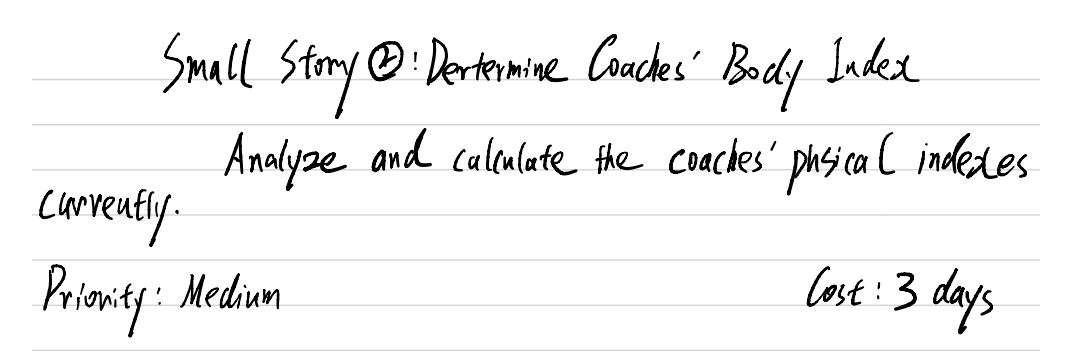 Small Story ②: Dertermine Coaches' Body Index
Analyze and calculate the coaches' phsical indexes
currently.
Priority: Medium Cost: 3 days